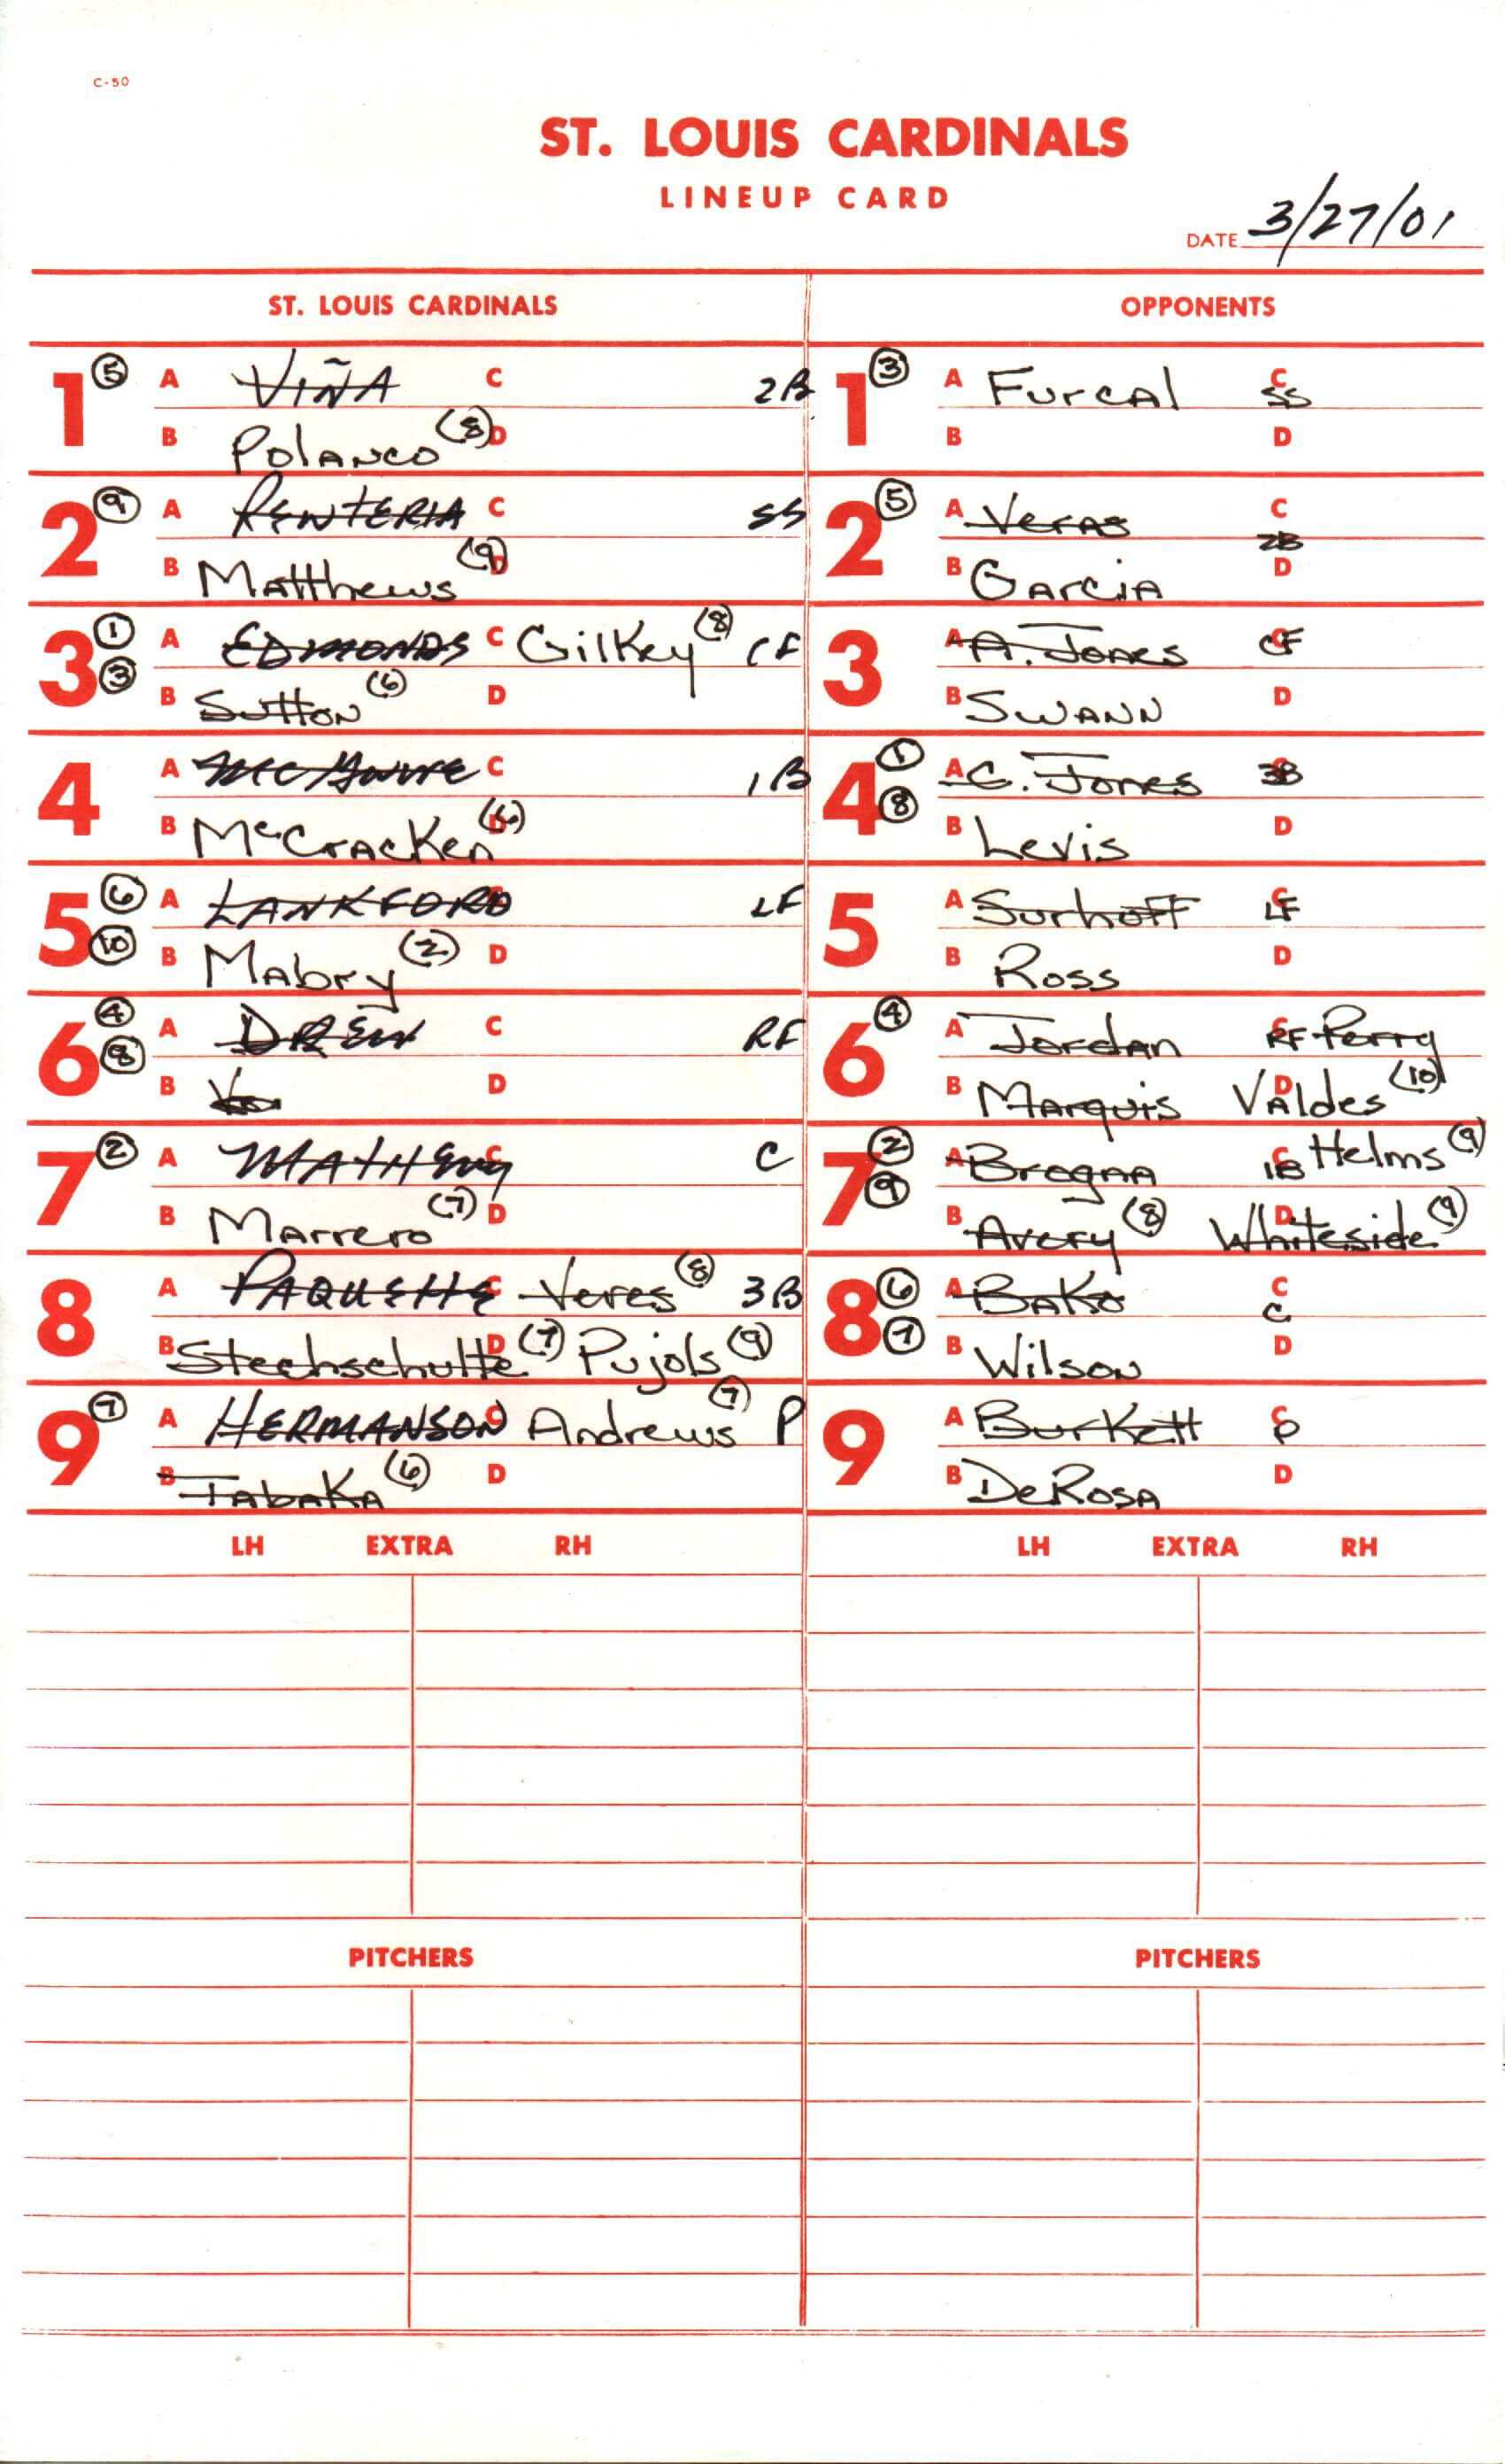 C-50
ST. LOUIS CARDINALS
LINEUP CARD
DATE 3/27/01
ST. LOUIS CARDINALS
1 5 A VIÑA C 2B
B Polanco (8) D
2 9 A RENTERIA C SS
B Matthews (9) D
3 1 A EDMONDS C Gilkey (8) CF
3 B Sutton (6) D
4 A McGwire C 1B
B McCracken (6) D
5 6 A LANKFORD C LF
10 B Mabry (2) D
6 4 A DREW C RF
8 B D
7 2 A MATHENY C C
B Marrero (7) D
8 A PAQUETTE C Veres (8) 3B
B Stechschulte (7) D Pujols (9)
9 7 A HERMANSON C Andrews (7) P
B Tabaka (6) D
LH EXTRA RH
PITCHERS
OPPONENTS
1 3 A Furcal C SS
B D
2 5 A Veras C 2B
B Garcia D
3 A A. Jones C CF
B Swann D
4 1 A C. Jones C 3B
8 B Levis D
5 A Surhoff C LF
B Ross D
6 4 A Jordan C RF Perry
B Marquis D Valdes (10)
7 2 A Brogna C 1B Helms (9)
9 B Avery (8) D Whiteside (9)
8 6 A Bako C C
7 B Wilson D
9 A Burkett C P
B DeRosa D
LH EXTRA RH
PITCHERS